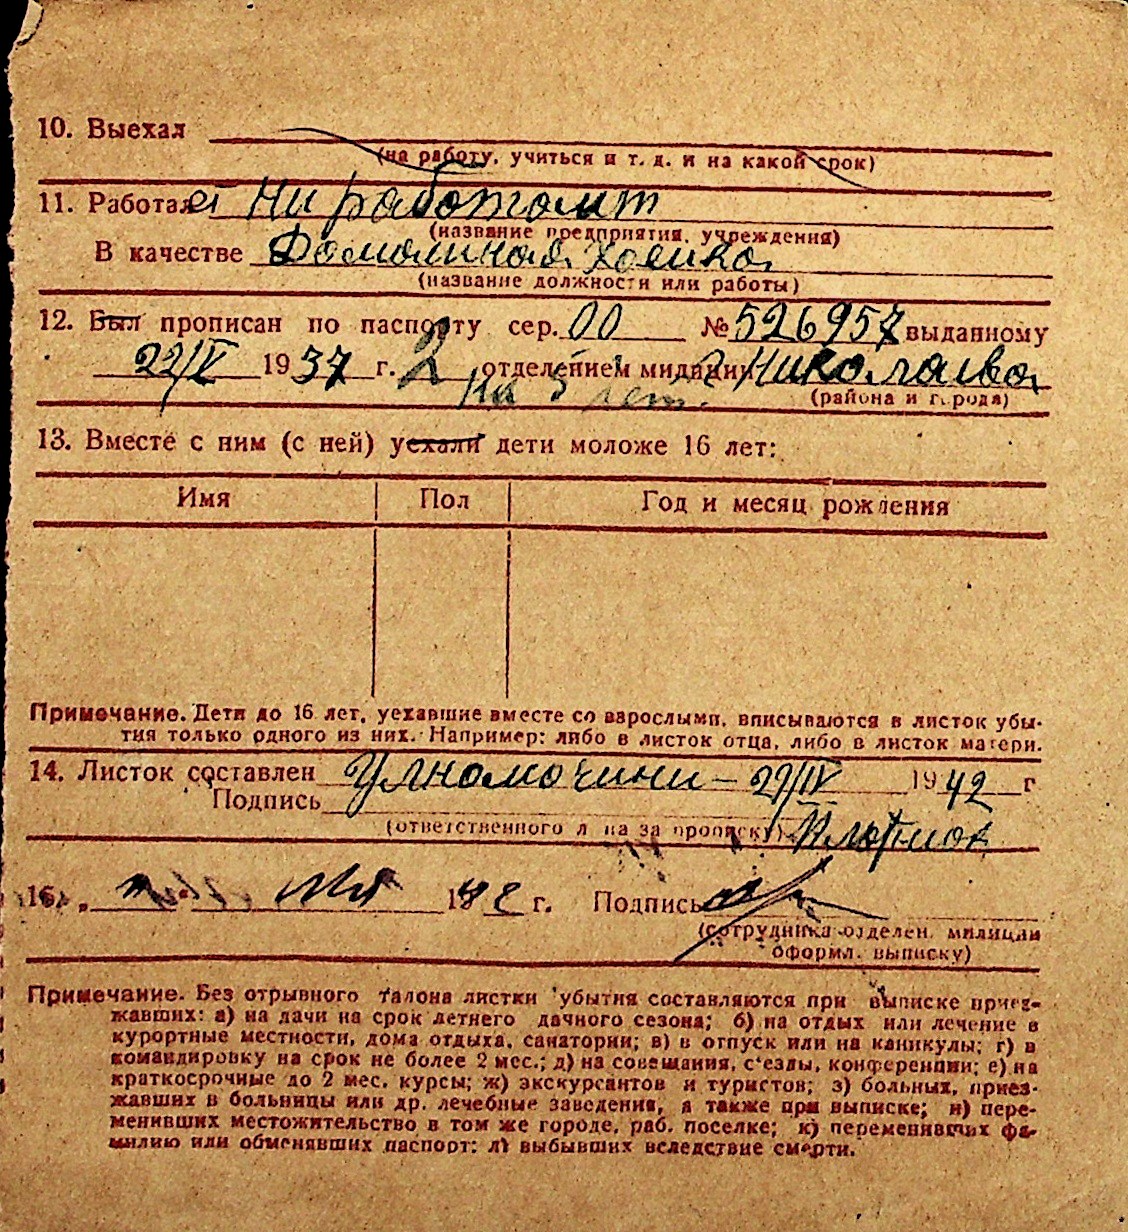 10. Выехал
(на работу, учиться и т. д. и на какой срок)
11. Работает Ни работаит
(название предприятия, учреждения)
В качестве Домашная хозика
(название должности или работы)
12. Был прописан по паспорту сер. 00 № 526957 выданному
22/V 1937 г. 2 отделением милиции г. Николаива
на 5 лет.
(района и города)
13. Вместе с ним (с ней) уехали дети моложе 16 лет:
Имя Пол Год и месяц рождения
Примечание. Дети до 16 лет, уехавшие вместе со взрослыми, вписываются в листок убы-
тия только одного из них. Например: либо в листок отца, либо в листок матери.
14. Листок составлен 29/IV 1942 г
Подпись
(ответственного л на за прописку)
16. 1942 г. Подпись
(сотрудника отделен. милиции
оформл. выписку)
Примечание. Без отрывного талона листки убытия составляются при выписке приез-
жавших: а) на дачи на срок летнего дачного сезона; б) на отдых или лечение в
курортные местности, дома отдыха, санатории; в) в отпуск или на каникулы; г) в
командировку на срок не более 2 мес.; д) на совещания, с'езды, конференции; е) на
краткосрочные до 2 мес. курсы; ж) экскурсантов и туристов; з) больных, приез-
жавших в больницы или др. лечебные заведения, а также при выписке; и) пере-
менивших местожительство в том же городе, раб. поселке; к) переменивших фа-
милию или обменявших паспорт; л) выбывших вследствие смерти.